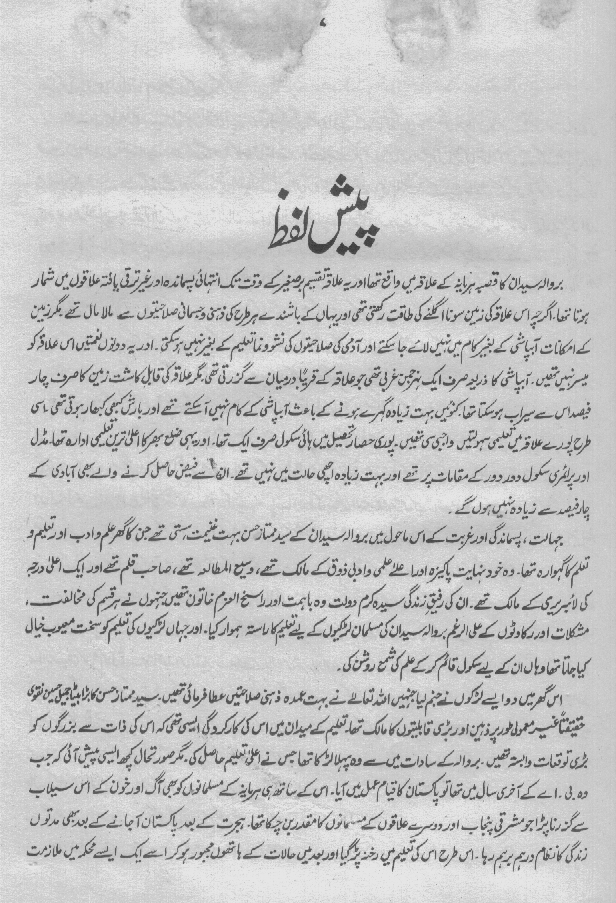 پیش لفظ
بروالہ سیدان کا قصبہ ہریانہ کے علاقہ میں واقع تھا اور یہ علاقہ تقسیم برصغیر کے وقت تک انتہائی پسماندہ اور غیر ترقی یافتہ علاقوں میں شمار
ہوتا تھا۔ اگرچہ اس علاقہ کی زمین سونا اگلنے کی طاقت رکھتی تھی اور یہاں کے باشندے ہر طرح کی ذہنی و جسمانی صلاحیتوں سے مالا مال تھے مگر زمین
کے امکانات آبپاشی کے بغیر کام میں نہیں لائے جا سکتے اور آدمی کی صلاحیتوں کی نشوونما تعلیم کے بغیر نہیں ہو سکتی۔ اور یہ دونوں نعمتیں اس علاقہ کو
میسر نہیں تھیں۔ آبپاشی کا ذریعہ صرف ایک نہر جمن غربی تھی جو علاقہ کے قریباً درمیان سے گزرتی تھی مگر علاقہ کی قابل کاشت زمین کا صرف چار
فیصد اس سے سیراب ہو سکتا تھا۔ کنویں بہت زیادہ گہرے ہونے کے باعث آبپاشی کے کام نہیں آ سکتے تھے اور بارش کبھی کبھار ہوتی تھی۔ اسی
طرح پورے علاقہ میں تعلیمی سہولتیں واجبی سی تھیں۔ پوری حصار تحصیل میں ہائی سکول صرف ایک تھا۔ اور یہی ضلع بھر کا اعلیٰ ترین تعلیمی ادارہ تھا۔ مڈل
اور پرائمری سکول دور دور کے مقامات پر تھے اور بہت زیادہ اچھی حالت میں نہیں تھے۔ ان سے فیض حاصل کرنے والے بھی آبادی کے
چار فیصد سے زیادہ نہیں ہوں گے۔
جہالت، پسماندگی اور غربت کے اس ماحول میں بروالہ سیدان کے سید ممتاز حسن بہت غنیمت ہستی تھے جن کا گھر علم و ادب اور تعلیم و
تعلم کا گہوارہ تھا۔ وہ خود نہایت پاکیزہ اور اعلےٰ علمی و ادبی ذوق کے مالک تھے، وسیع المطالعہ تھے، صاحب قلم تھے اور ایک اعلیٰ درجہ
کی لائبریری کے مالک تھے۔ ان کی رفیق زندگی سیدہ کرم دولت وہ باہمت اور راسخ العزم خاتون تھیں جنہوں نے ہر قسم کی مخالفت،
مشکلات اور رکاوٹوں کے علی الرغم بروالہ سیدان کی مسلمان لڑکیوں کے لیے تعلیم کا راستہ ہموار کیا۔ اور جہاں لڑکیوں کی تعلیم کو سخت معیوب خیال
کیا جاتا تھا وہاں ان کے لیے سکول قائم کر کے علم کی شمع روشن کی۔
اس گھر میں دو ایسے لڑکوں نے جنم لیا جنہیں اللہ تعالےٰ نے بہت عمدہ ذہنی صلاحیتیں عطا فرمائی تھیں۔ سید ممتاز حسن کا بڑا بیٹا جمیل حسین نقوی
حقیقتاً غیر معمولی طور پر ذہین اور بڑی قابلیتوں کا مالک تھا۔ تعلیم کے میدان میں اس کی کارکردگی ایسی تھی کہ اس کی ذات سے بزرگوں کو
بڑی توقعات وابستہ تھیں۔ بروالہ کے سادات میں سے وہ پہلا لڑکا تھا جس نے اعلیٰ تعلیم حاصل کی۔ مگر صورتحال کچھ ایسی پیش آئی کہ جب
وہ بی۔ اے کے آخری سال میں تھا تو پاکستان کا قیام عمل میں آیا۔ اس کے ساتھ ہی ہریانہ کے مسلمانوں کو بھی آگ اور خون کے اس سیلاب
سے گزرنا پڑا جو مشرقی پنجاب اور دوسرے علاقوں کے مسلمانوں کا مقدر بن چکا تھا۔ ہجرت کے بعد پاکستان آ جانے کے بعد بھی مدتوں
زندگی کا نظام درہم برہم رہا۔ اس طرح اس کی تعلیم میں رخنہ پڑ گیا اور بعد میں حالات کے ہاتھوں مجبور ہو کر اسے ایک ایسے محکمہ میں ملازمت